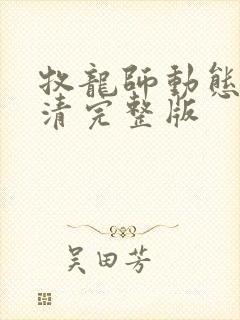 牧龍師動態
清完整版
吴田芳